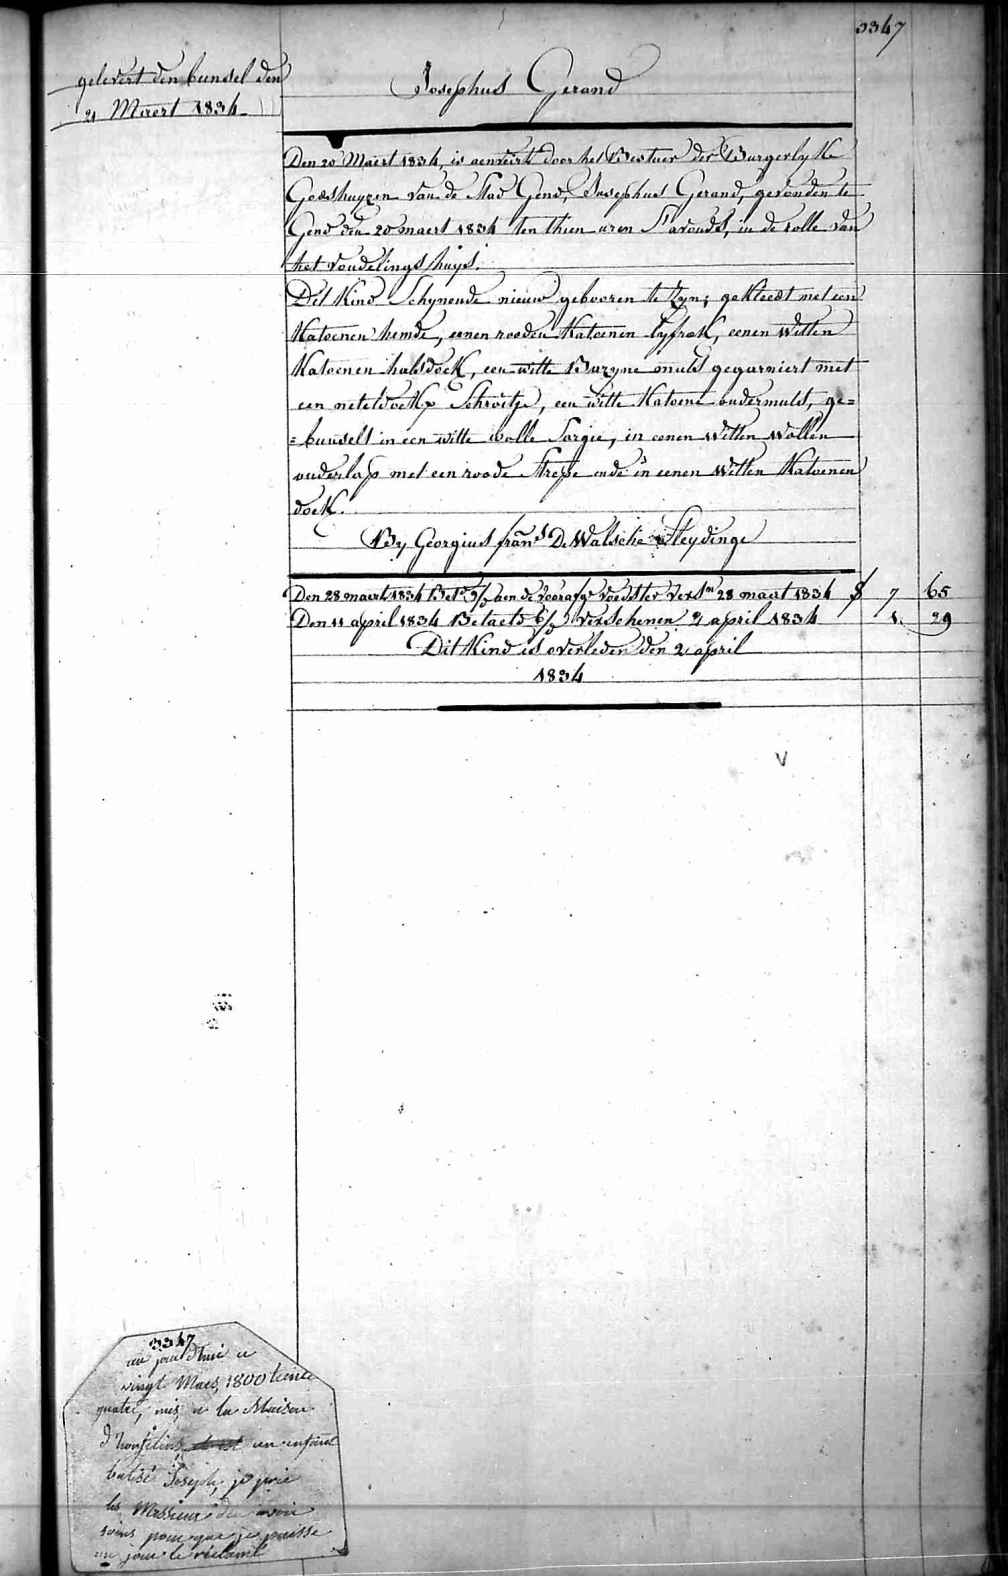 3347
gelevert den bunsel den
21 Maert 1834
Josephus Gerand
Den 20 Maert 1834, is aenveirt door het Bestuer der Burgerlyke
Godshuyzen van de Stad Gend, Josephus Gerand, gevonden te
Gend den 20 maert 1834 ten thien uren S'avonds, in de rolle van
het vondelings huys.
Dit Kind Schynende nieuw gebooren te Zyn; gekleedt met een
Katoenen hemde, eenen rooden Katoenen lyfrok, eenen witten
Katoenen halsdoek, een witte Bazyne muts gegarniert met
een neteldoekx Schrootje, een witte Katoene ondermuts, ge=
=bunselt in een witte wolle Sargie, in eenen witten wollen
onderlap met een roode Strepe ende in eenen witten Katoenen
doek.
By Georgius frans De Walsche Sleydinge
Den 28 maert 1834 Bet. aen de voorafg. voedster vers. 28 maart 1834 7 65
Den 11 april 1834 Betaeld verschenen 2 april 1834 1. 29
Dit Kind is overleden den 2 april
1834
3347
au jour d'hui ce
vingt Mars, 1800 trente
quatre, mis a la Maison
d'horfelins, un enfant
batisé Joseph, je prie
les Messieurs d'en avoir
soins pour que je puisse
un jour le réclamé